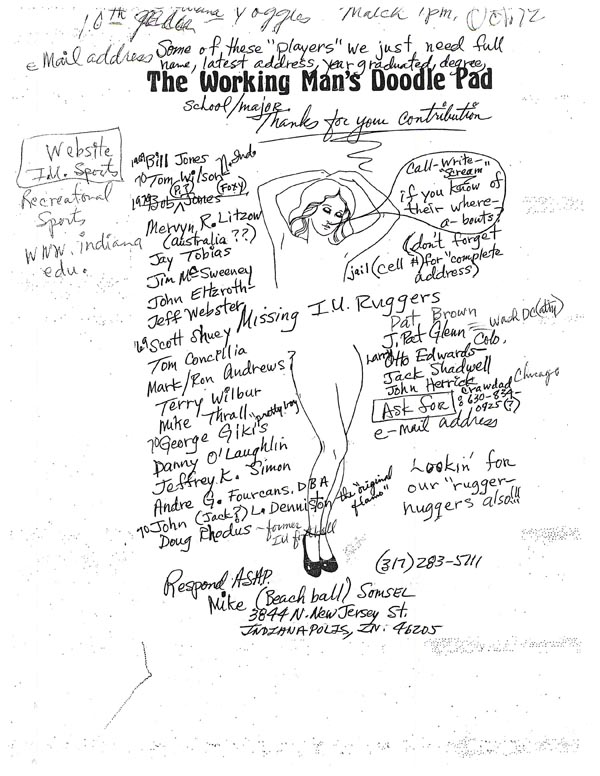 10th
Yoggles Match 1pm, Oct. 12
e Mail address
Some of these "players" we just need full
name, latest address, year graduated, degree,
The Working Man's Doodle Pad
school/major.
Thanks for your contribution
Website
I.U. Sports
Recreational
Sports
www.indiana
edu.
1969 Bill Jones
70 Tom Wilson N. Indo
(P.J.) (Foxy)
1979 Bob Jones
Mervyn R. Litzow
(Australia ??)
Jay Tobias
Jim McSweeney
John Eltzroth
Jeff Webster
'69 Scott Shuey
Tom Concillia
Mark/Ron Andrews?
Terry Wilbur
Mike Thrall pretty boy
70 George Gikis
Danny O'Laughlin
Jeffrey K. Simon
Andre G. Fourcans, DBA
70 John (Jack?) L. Denniston the "original flamo"
Doug Rhodus - former
IU football
Call-Write-
"Scream"
if you know of
their where-
a-bouts!
(don't forget
jail (cell #) for "complete
address)
Missing I.U. Ruggers
Pat Brown
J. Pat Glenn = Wash DC (atty)
Larry Otto Edwards - Colo.
Jack Shadwell
John Hetrick Chicago
Ask for Crawdad
630-834-
0925 (?)
e-mail address
Lookin' for
our "rugger-
huggers also!!!
(317) 283-5711
Respond ASAP.
Mike (Beach ball) Somsel
3844 N. New Jersey St.
Indianapolis, IN. 46205